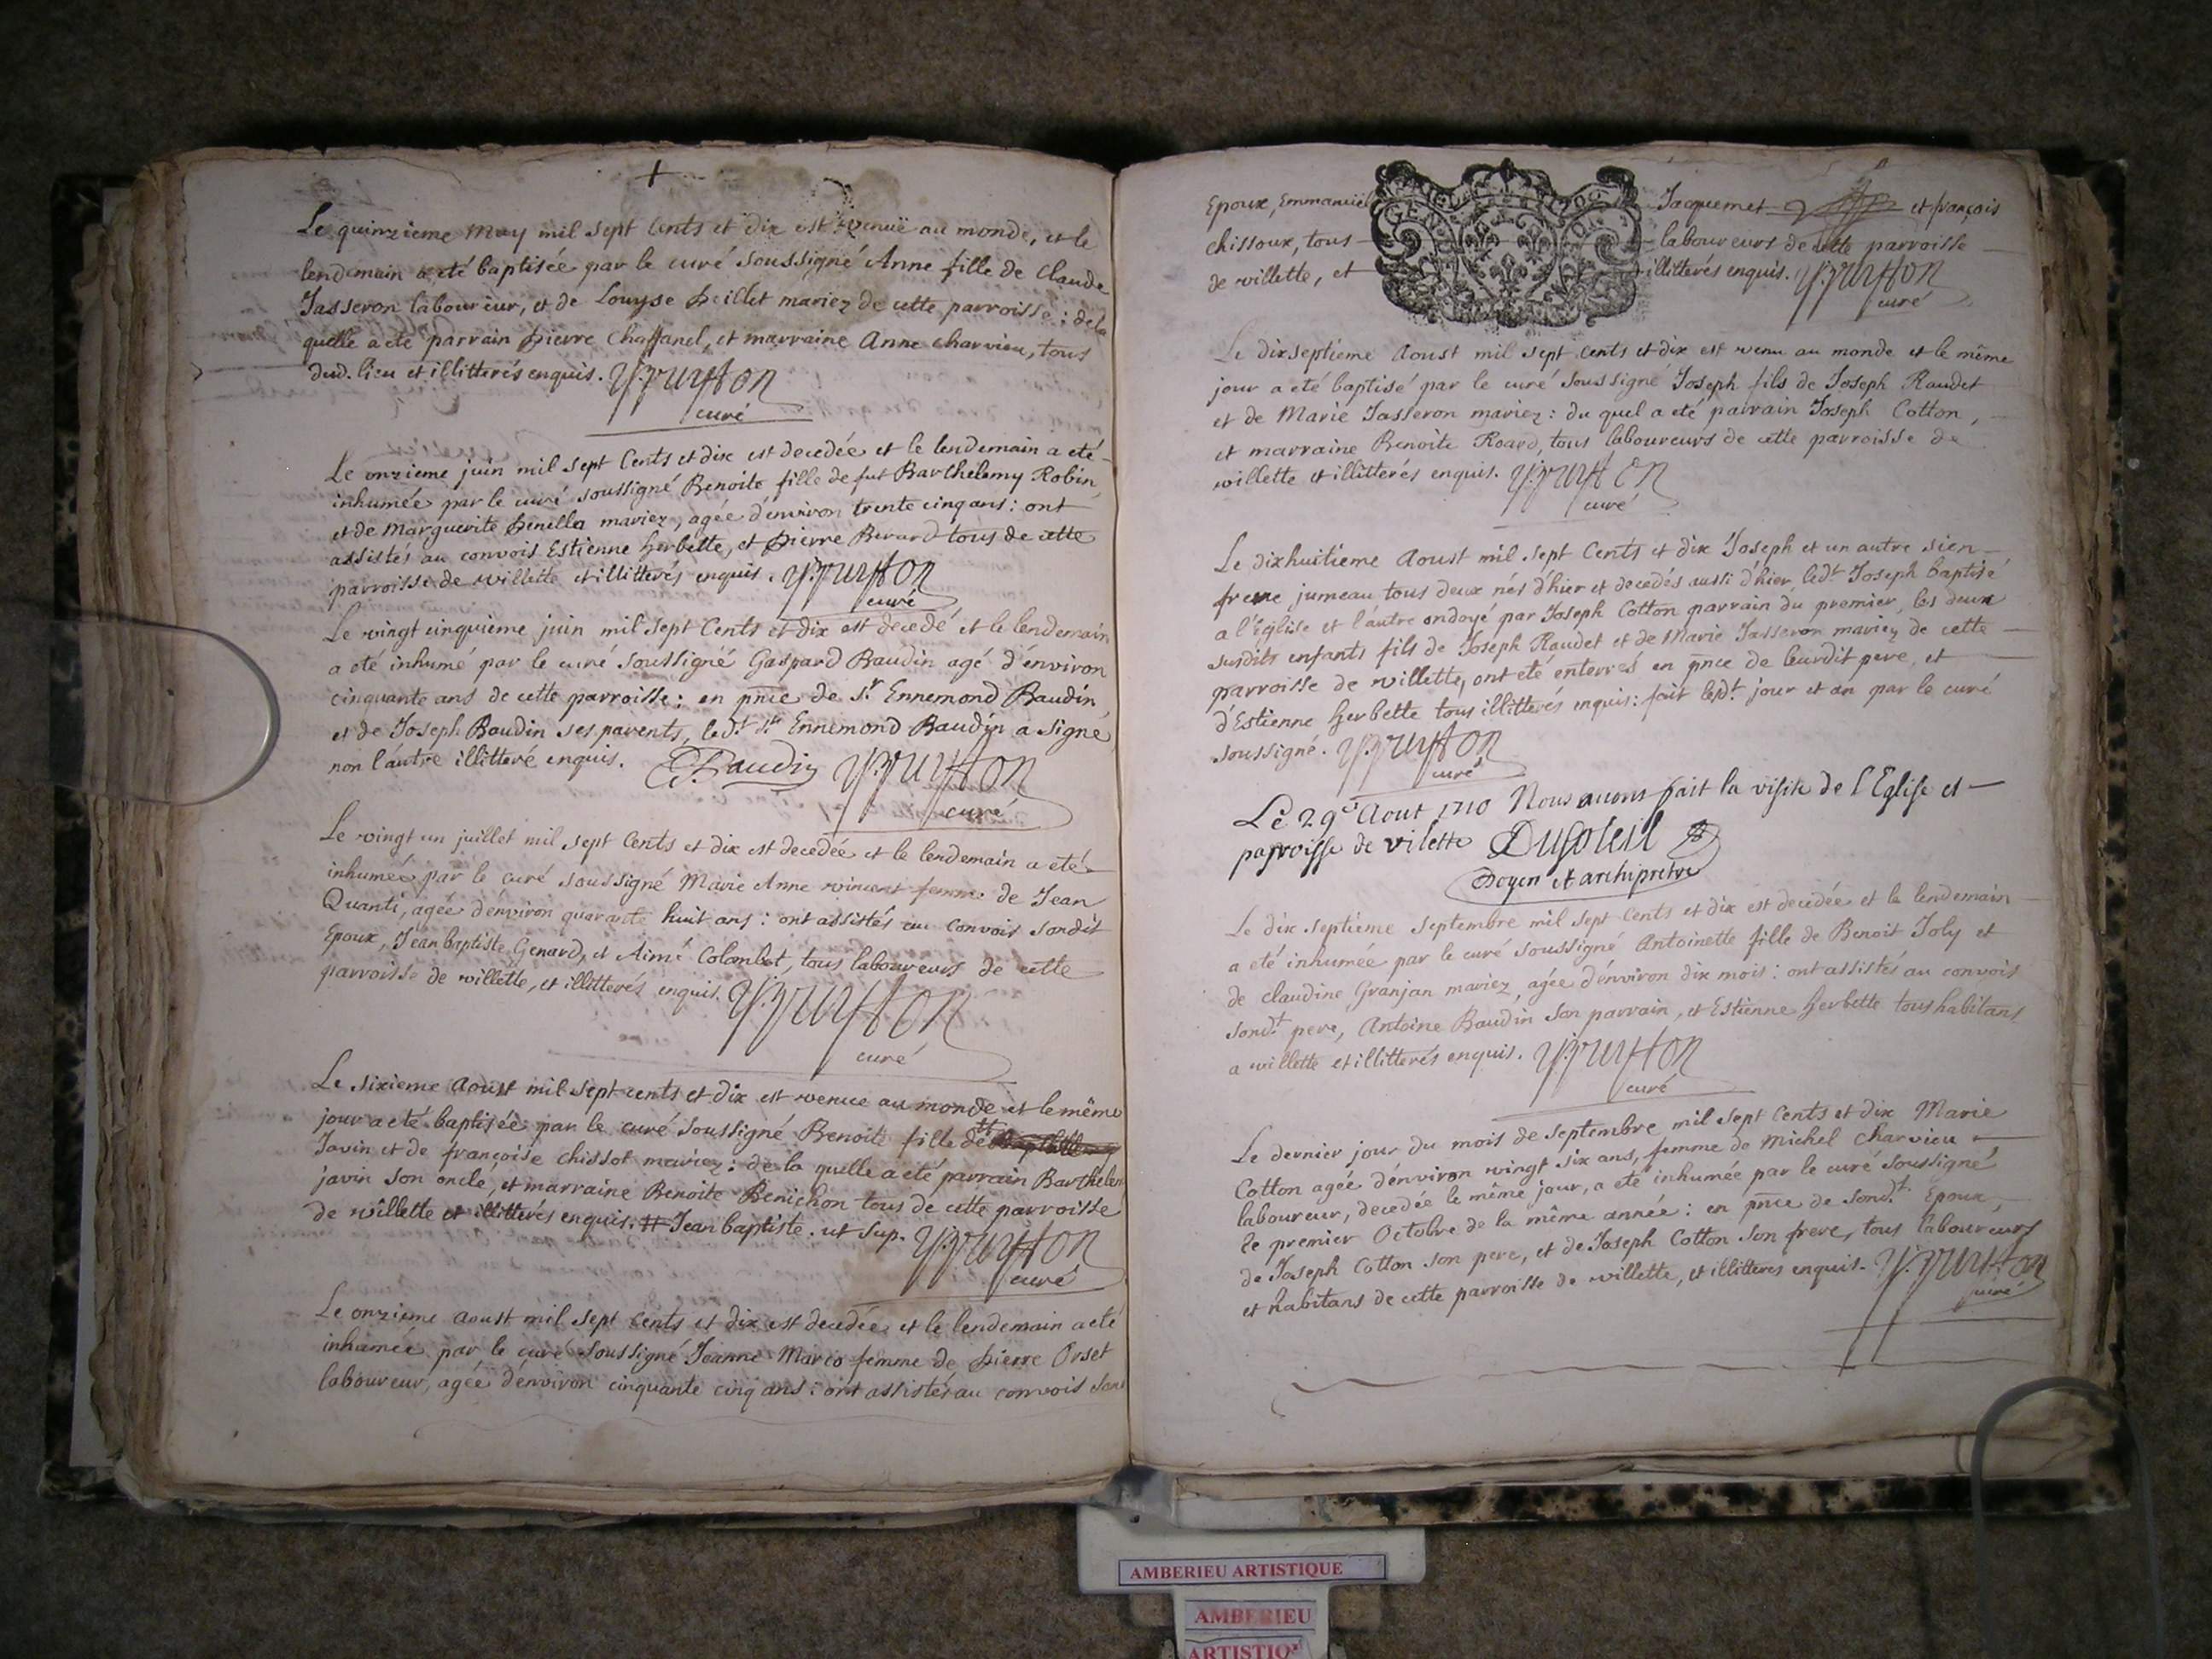 Le quinzieme May mil sept cents et dix est venuë au monde, et le
lendemain a eté baptisée par le curé soussigné Anne fille de Claude
Jasseron laboureur, et de Louyse Peillet mariez de cette parroisse : de la
quelle a eté parrain Pierre Chaffanel, et marraine Anne Charvieu, tous
dud. lieu et illitterés enquis.
curé
Le onzieme juin mil sept Cents et dix est decedée et le lendemain a eté
inhumée par le curé soussigné Benoite fille de fut Barthelemy Robin,
et de Marguerite Penilla mariez, agée d'environ trente cinq ans : ont
assistés au convois Estienne herbette, et Pierre Berard tous de cette
parroisse de villette et illitterés enquis.
curé
Le vingt cinquieme juin mil sept Cents et dix est decedé et le lendemain
a eté inhumé par le curé soussigné Gaspard Baudin agé d'environ
cinquante ans de cette parroisse : en pnce de Sr Ennemond Baudin,
et de Joseph Baudin ses parents, led.t Sr Ennemond Baudin a signé
non l'autre illitteré enquis. Baudin
curé
Le vingt un juillet mil sept Cents et dix est decedée et le lendemain a eté
inhumée par le curé soussigné Marie Anne vincent femme de Jean
Quanti, agée d'environ quarante huit ans : ont assistés au convois sondit
Epoux, Jean baptiste Genard, et Aimé Colombet, tous laboureurs de cette
parroisse de villette, et illitterés enquis.
curé
Le sixieme Aoust mil sept cents et dix est venue au monde et le même
jour a eté baptisée par le curé soussigné Benoite fille de
Javin et de françoise Chissot mariez : de la quelle a eté parrain Barthelem
javin son oncle, et marraine Benoite Benichon tous de cette parroisse
de villette et illitterés enquis. # Jean baptiste. ut sup.
curé
Le onzieme Aoust mil sept Cents et dix est decedée et le lendemain a eté
inhumée par le curé soussigné Jeanne Marco femme de Pierre Orset
laboureur, agée d'environ cinquante cinq ans : ont assistés au convois
Epoux, Emmanuel Jacquemet et françois
chissoux, tous laboureurs de cette parroisse
de villette, et illitterés enquis.
curé
Le dixseptieme Aoust mil sept cents et dix est venu au monde et le même
jour a eté baptisé par le curé soussigné Joseph fils de Joseph Raudet
et de Marie Jasseron mariez : du quel a eté parrain Joseph Cotton,
et marraine Benoite Roard, tous laboureurs de cette parroisse de
villette et illitterés enquis.
curé
Le dixhuitieme Aoust mil sept Cents et dix Joseph et un autre sien
frere jumeau tous deux nés d'hier et decedés aussi d'hier led.t Joseph baptisé
a l'Eglise et l'autre ondoyé par Joseph Cotton parrain du premier, les deux
susdits enfants fils de Joseph Raudet et de Marie Jasseron mariez de cette
parroisse de villette, ont eté enterrés en pnce de leurdit pere, et
d'Estienne herbette tous illitterés enquis : fait lesd.t jour et an par le curé
soussigné.
curé
Le 29e Aout 1710 Nous avons fait la visite de l Eglise et
parroisse de vilette Dusoleil
Doyen et archipretre
Le dix septieme Septembre mil sept Cents et dix est decedée et le lendemain
a eté inhumée par le curé soussigné Antoinette fille de Benoit Joly et
de Claudine Granjan mariez, agée d'environ dix mois : ont assistés au convois
sond.t pere, Antoine Baudin son parrain, et Estienne herbette tous habitans
a villette et illitterés enquis.
curé
Le dernier jour du mois de Septembre mil sept Cents et dix Marie
Cotton agée d'environ vingt six ans, femme de Michel Charvieu
laboureur, decedée le même jour, a eté inhumée par le curé soussigné
le premier Octobre de la même année : en pnce de sond.t Epoux,
de Joseph Cotton son pere, et de Joseph Cotton son frere, tous laboureurs
et habitans de cette parroisse de villette, et illitteres enquis.
curé
AMBERIEU ARTISTIQUE
AMBERIEU
ARTISTIQ